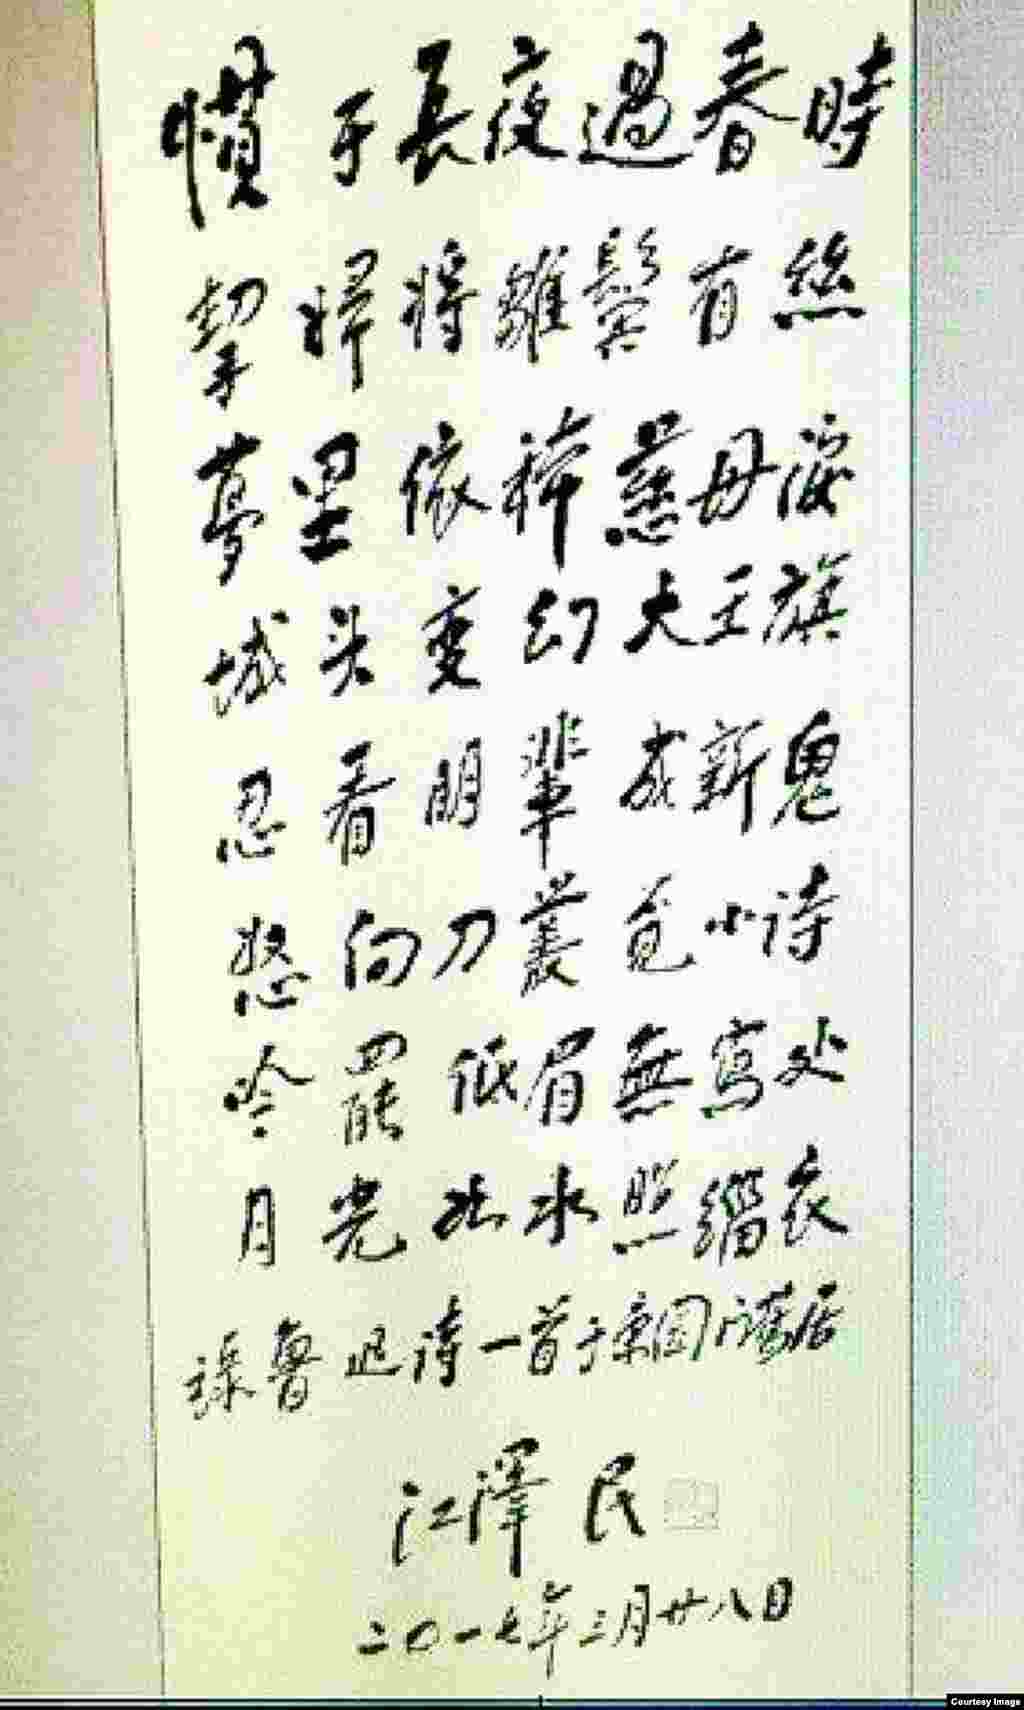 慣于長夜過春時
挈婦將雛鬓有絲
夢里依稀慈母淚
城头变幻大王旗
忍看朋輩成新鬼
怒向刀叢覓小诗
吟罷低眉無寫处
月光如水照緇衣
録魯迅诗一首于東園
江澤民
二〇一七年三月廿八日
Courtesy Image